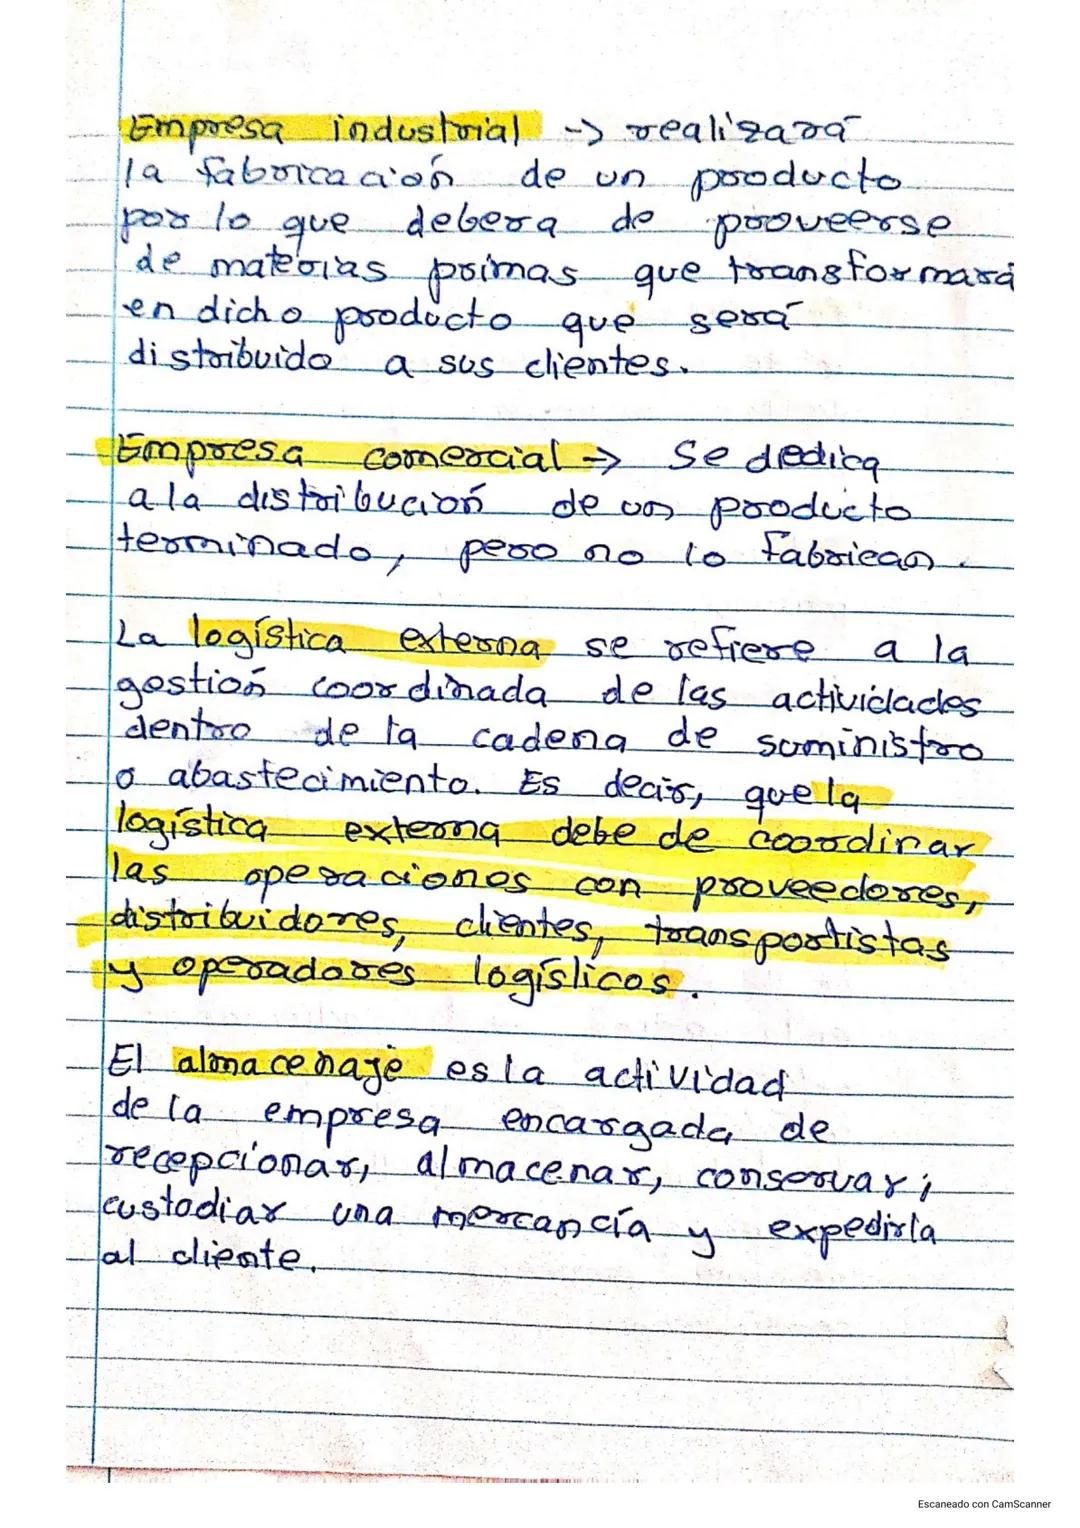 Empresa industrial -> realizará
la fabricación de un producto
por lo que debera de proveerse
de materias primas que transformará
en dicho producto que será
distribuido a sus clientes.
Empresa comercial -> Se dedica
a la distribución de un producto
terminado, pero no lo fabrican.
La logística externa se refiere a la
gestión coordinada de las actividades
dentro de la cadena de suministro
o abastecimiento. Es decir, que la
logística externa debe de coordinar
las operaciones con proveedores,
distribuidores, clientes, transportistas
y operadores logísticos.
El almacenaje es la actividad
de la empresa encargada de
recepcionar, almacenar, conservar,
custodiar una mercancía y expedirla
al cliente.
Escaneado con CamScanner